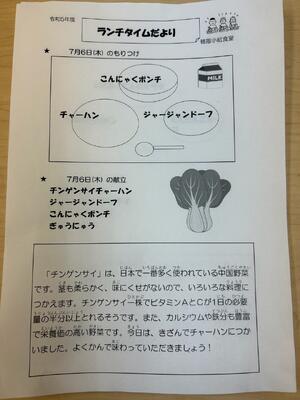 令和5年度
ランチタイムだより
給食室
★ 7月6日(木) のもりつけ
こんにゃくポンチ
MILK
チャーハン
ジャージャンドーフ
★ 7月6日(木) の献立
チンゲンサイチャーハン
ジャージャンドーフ
こんにゃくポンチ
ぎゅうにゅう
「チンゲンサイ」は、日本で一番多く使われている中国野菜
です。茎も柔らかく、味にくせがないので、いろいろな料理に
つかえます。チンゲンサイ一株でビタミンAとCが1日の必要
量の半分以上とれるそうです。また、カルシウムや鉄分も豊富
で栄養価の高い野菜です。今日は、きざんでチャーハンにつか
いました。よくかんで味わっていただきましょう！